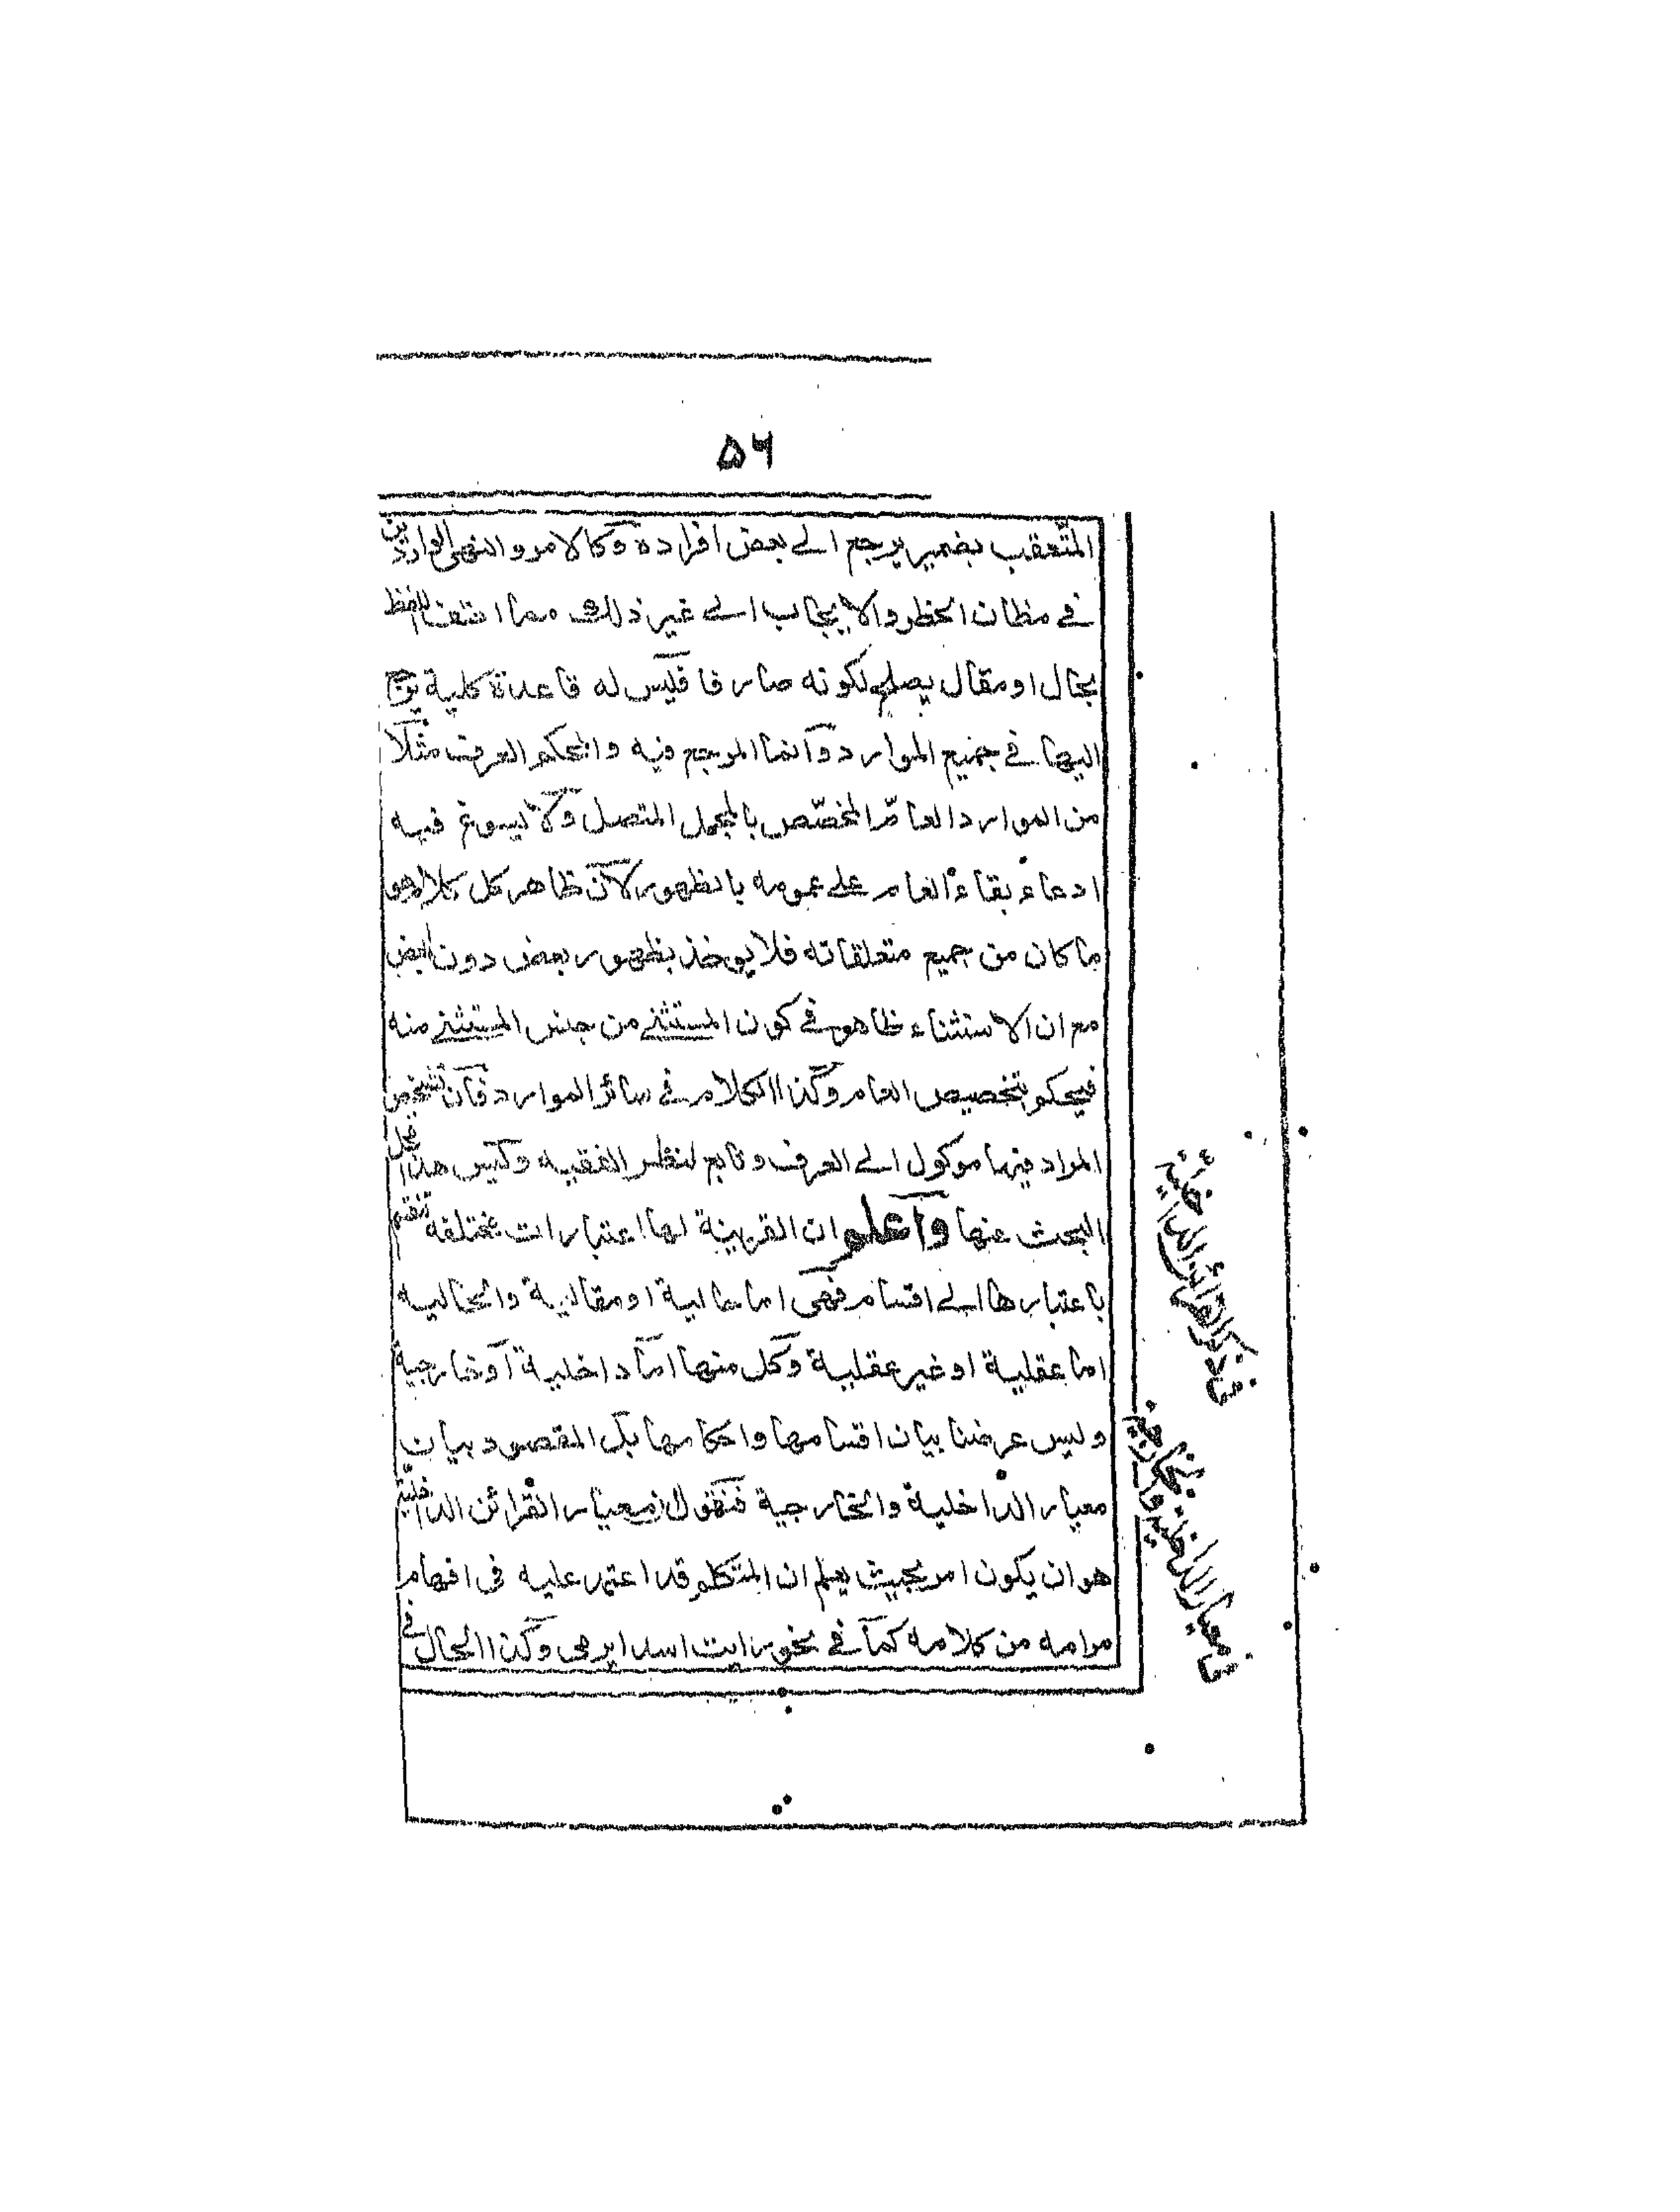 ۵۶
المتعقب بضمير يرجع الے بعض افراده وكالامر والنهى الواردين
فے مظان الحظر والايجاب الے غير ذلك مما احتف اللفظ
بحال او مقال يصلح لكونه صارفا فليس له قاعدة كلية يرجع
اليها فے جميع الموارد وانما المرجع فيه والمحكم العرف مثلا
من الموارد العامّ المخصّص بالمجمل المتصل ولا يسوغ فيه
ادعاء بقاء العام علے عمومه بالظهور لان ظاهر كل كلام هو
ما كان من جميع متعلقاته فلا يوخذ بظهور بعض دون البعض
مع ان الاستثناء ظاهر فے كون المستثنے من جنس المستثنے منه
فيحكم بتخصيص العام وكذا الكلام فے سائر الموارد فان تشخيص
المراد فيها موكول الے العرف وتابع لنظر الفقيه وليس هذا محل
البحث عنها واعلم ان القرينة لها اعتبارات مختلفة تنقسم
باعتبارها الے اقسام فهى اما حالية او مقالية والحاليه
اما عقلية او غير عقلية وكل منها اما داخلية او خارجية
وليس غرضنا بيان اقسامها واحكامها بل المقصود بيان
معيار الداخلية والخارجية فنقول معيار القرائن الداخلية
هو ان يكون امر بحيث يعلم ان المتكلم قد اعتمد عليه فى افهام
مرامه من كلامه كما فے نحو رايت اسدا يرمى وكذا الحال فے
فے ذكر القرائن الداخلية
فے معيار الداخلية والخارجية